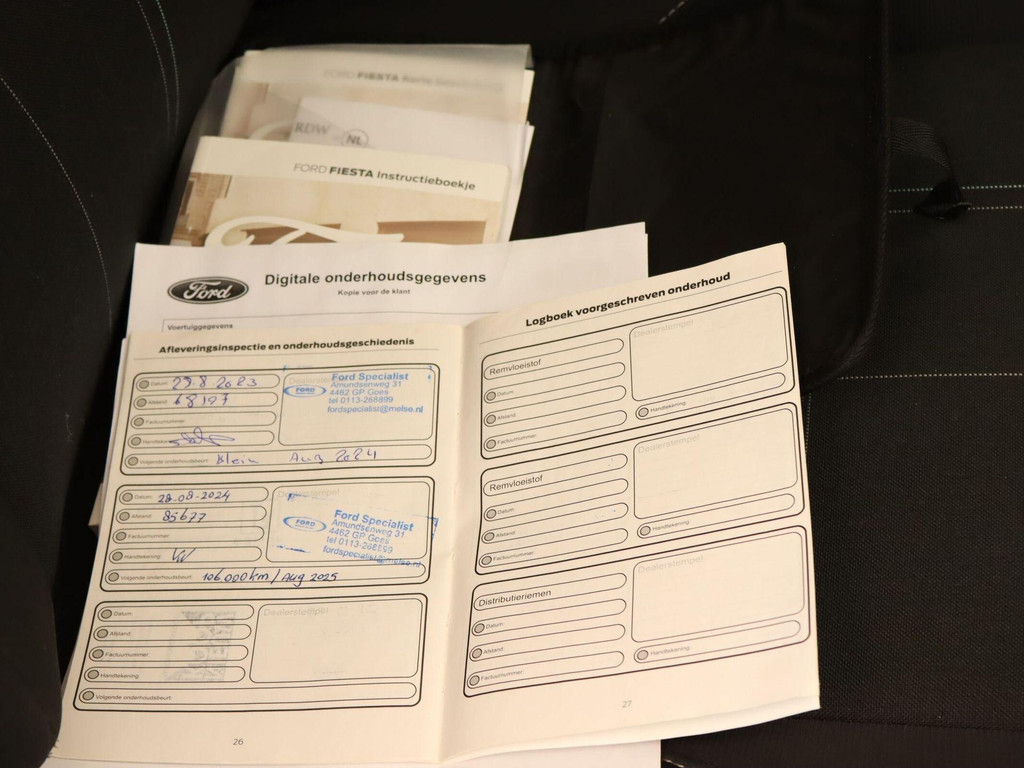 FORD FIESTA
RDW NL
FORD FIESTA Instructieboekje
Ford
Digitale onderhoudsgegevens
Kopie voor de klant
Voertuiggegevens
Afleveringsinspectie en onderhoudsgeschiedenis
Datum: 29.8 2023
Afstand: 68197
Factuurnummer:
Handtekening:
Volgende onderhoudsbeurt: Klein Aug 2024
FORD
Ford Specialist
Amundsenweg 31
4462 GP Goes
tel 0113-268899
fordspecialist@melse.nl
Datum: 28-08-2024
Afstand: 85677
Factuurnummer:
Handtekening:
Volgende onderhoudsbeurt: 106 000km / Aug 2025
Dealerstempel
FORD
Ford Specialist
Amundsenweg 31
4462 GP Goes
tel 0113-268899
fordspecialist@melse.nl
Datum:
Afstand:
Factuurnummer:
Handtekening:
Volgende onderhoudsbeurt:
Dealerstempel
26
Logboek voorgeschreven onderhoud
Remvloeistof
Datum:
Afstand:
Factuurnummer:
Dealerstempel
Handtekening:
Remvloeistof
Datum:
Afstand:
Factuurnummer:
Dealerstempel
Handtekening:
Distributieriemen
Datum:
Afstand:
Factuurnummer:
Dealerstempel
Handtekening:
27